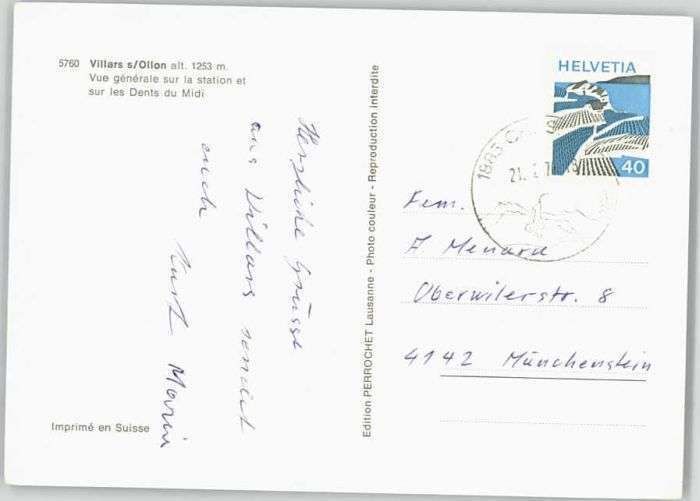 5760 Villars s/Ollon alt. 1253 m.
Vue générale sur la station et
sur les Dents du Midi
Herzliche Grüsse
aus Villars sendet
euch
Kurt
Imprimé en Suisse
Edition PERROCHET Lausanne - Photo couleur - Reproduction interdite
HELVETIA
40
Fam.
A Menard
Oberwilerstr. 8
4142 Münchenstein